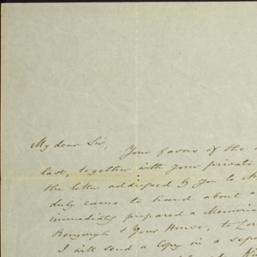 My dear Sir, Your favor of the
last, together with your private
the letter addressed by you to
duly came to hand about a
immediately prepared a
& Gore House, to
I will send a copy in a